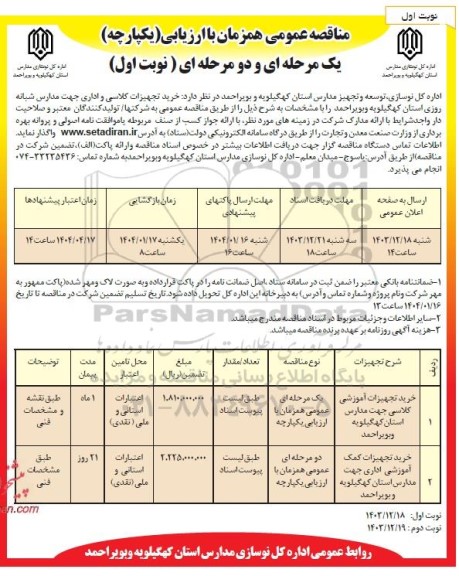 نوبت اول
مناقصه عمومی همزمان با ارزیابی(یکپارچه)
یک مرحله ای و دو مرحله ای ( نوبت اول)
اداره کل نوسازی مدارس
استان کهگیلویه وبویراحمد
اداره کل نوسازی مدارس
استان کهگیلویه وبویراحمد
اداره کل نوسازی،توسعه و تجهیز مدارس استان کهگیلویه و بویراحمد در نظر دارد: خرید تجهیزات کلاسی و اداری جهت مدارس شبانه
روزی استان کهگیلویه وبویراحمد را با مشخصات به شرح ذیل را از طریق مناقصه عمومی به شرکتها/ تولیدکنندگان معتبر و صلاحیت
دار واجدشرایط با ارائه مدارک شرکت در زمینه های مورد نظر، با ارائه جواز کسب از صنف مربوطه یاموافقت نامه اصولی و پروانه بهره
برداری از وزارت صنعت معدن وتجارت را از طریق درگاه سامانه الکترونیکی دولت(ستاد) به آدرس www.setadiran.ir واگذار نماید.
اطلاعات تماس دستگاه مناقصه گزار جهت دریافت اطلاعات بیشتر در خصوص اسناد مناقصه وارائه پاکت(الف)،تضمین شرکت در
مناقصه)از طریق آدرس:یاسوج-میدان معلم-اداره کل نوسازی مدارس استان کهگیلویه وبویراحمدبه شماره تماس: ۳۳۲۳۵۴۳۶-۰۷۴
انجام می پذیرد.
ارسال به صفحه اعلان عمومی
مهلت دریافت اسناد
مهلت ارسال پاکتهای پیشنهادی
زمان بازگشایی
زمان اعتبار پیشنهادها
شنبه ۱۴۰۳/۱۲/۱۸ ساعت۱۴
سه شنبه ۱۴۰۳/۱۲/۲۱ ساعت۱۸
شنبه ۱۴۰۴/۰۱/۱۶ ساعت۱۶
یکشنبه ۱۴۰۴/۰۱/۱۷ ساعت۸
۱۴۰۴/۰۴/۱۷ ساعت۱۴
۱-ضمانتنامه بانکی معتبر را ضمن ثبت در سامانه ستاد ،اصل ضمانت نامه را در پاکت قرارداده وبه صورت لاک ومهر شده(پاکت ممهور به
مهر شرکت ونام پروژه وشماره تماس وآدرس) به دبیرخانه این اداره کل تحویل داده شود.تاریخ تسلیم تضمین شرکت در مناقصه تا تاریخ
۱۴۰۴/۰۱/۱۶ ساعت۱۳
۲-سایر اطلاعات وجزئیات مربوط در اسناد مناقصه مندرج میباشد.
۳-هزینه آگهی روزنامه بر عهده برنده مناقصه میباشد.
ردیف
شرح تجهیزات
نوع مناقصه
تعداد/مقدار
مبلغ تضمین(ریال)
محل تامین اعتبار
مدت پیمان
توضیحات
۱
خرید تجهیزات آموزشی
کلاسی جهت مدارس
استان کهگیلویه
وبویراحمد
یک مرحله ای
عمومی همزمان با
ارزیابی یکپارچه
طبق لیست
پیوست اسناد
۱،۸۱۰،۰۰۰،۰۰۰
اعتبارات
استانی و
ملی (نقدی)
۱ ماه
طبق نقشه
و مشخصات
فنی
۲
خرید تجهیزات کمک
آموزشی اداری جهت
مدارس استان کهگیلویه
وبویراحمد
دو مرحله ای
عمومی همزمان با
ارزیابی یکپارچه
طبق لیست
پیوست اسناد
۲،۲۲۵،۰۰۰،۰۰۰
اعتبارات
استانی و
ملی (نقدی)
۲۱ روز
طبق
مشخصات
فنی
نوبت اول: ۱۴۰۳/۱۲/۱۸
نوبت دوم : ۱۴۰۳/۱۲/۱۹
روابط عمومی اداره کل نوسازی مدارس استان کهگیلویه وبویراحمد